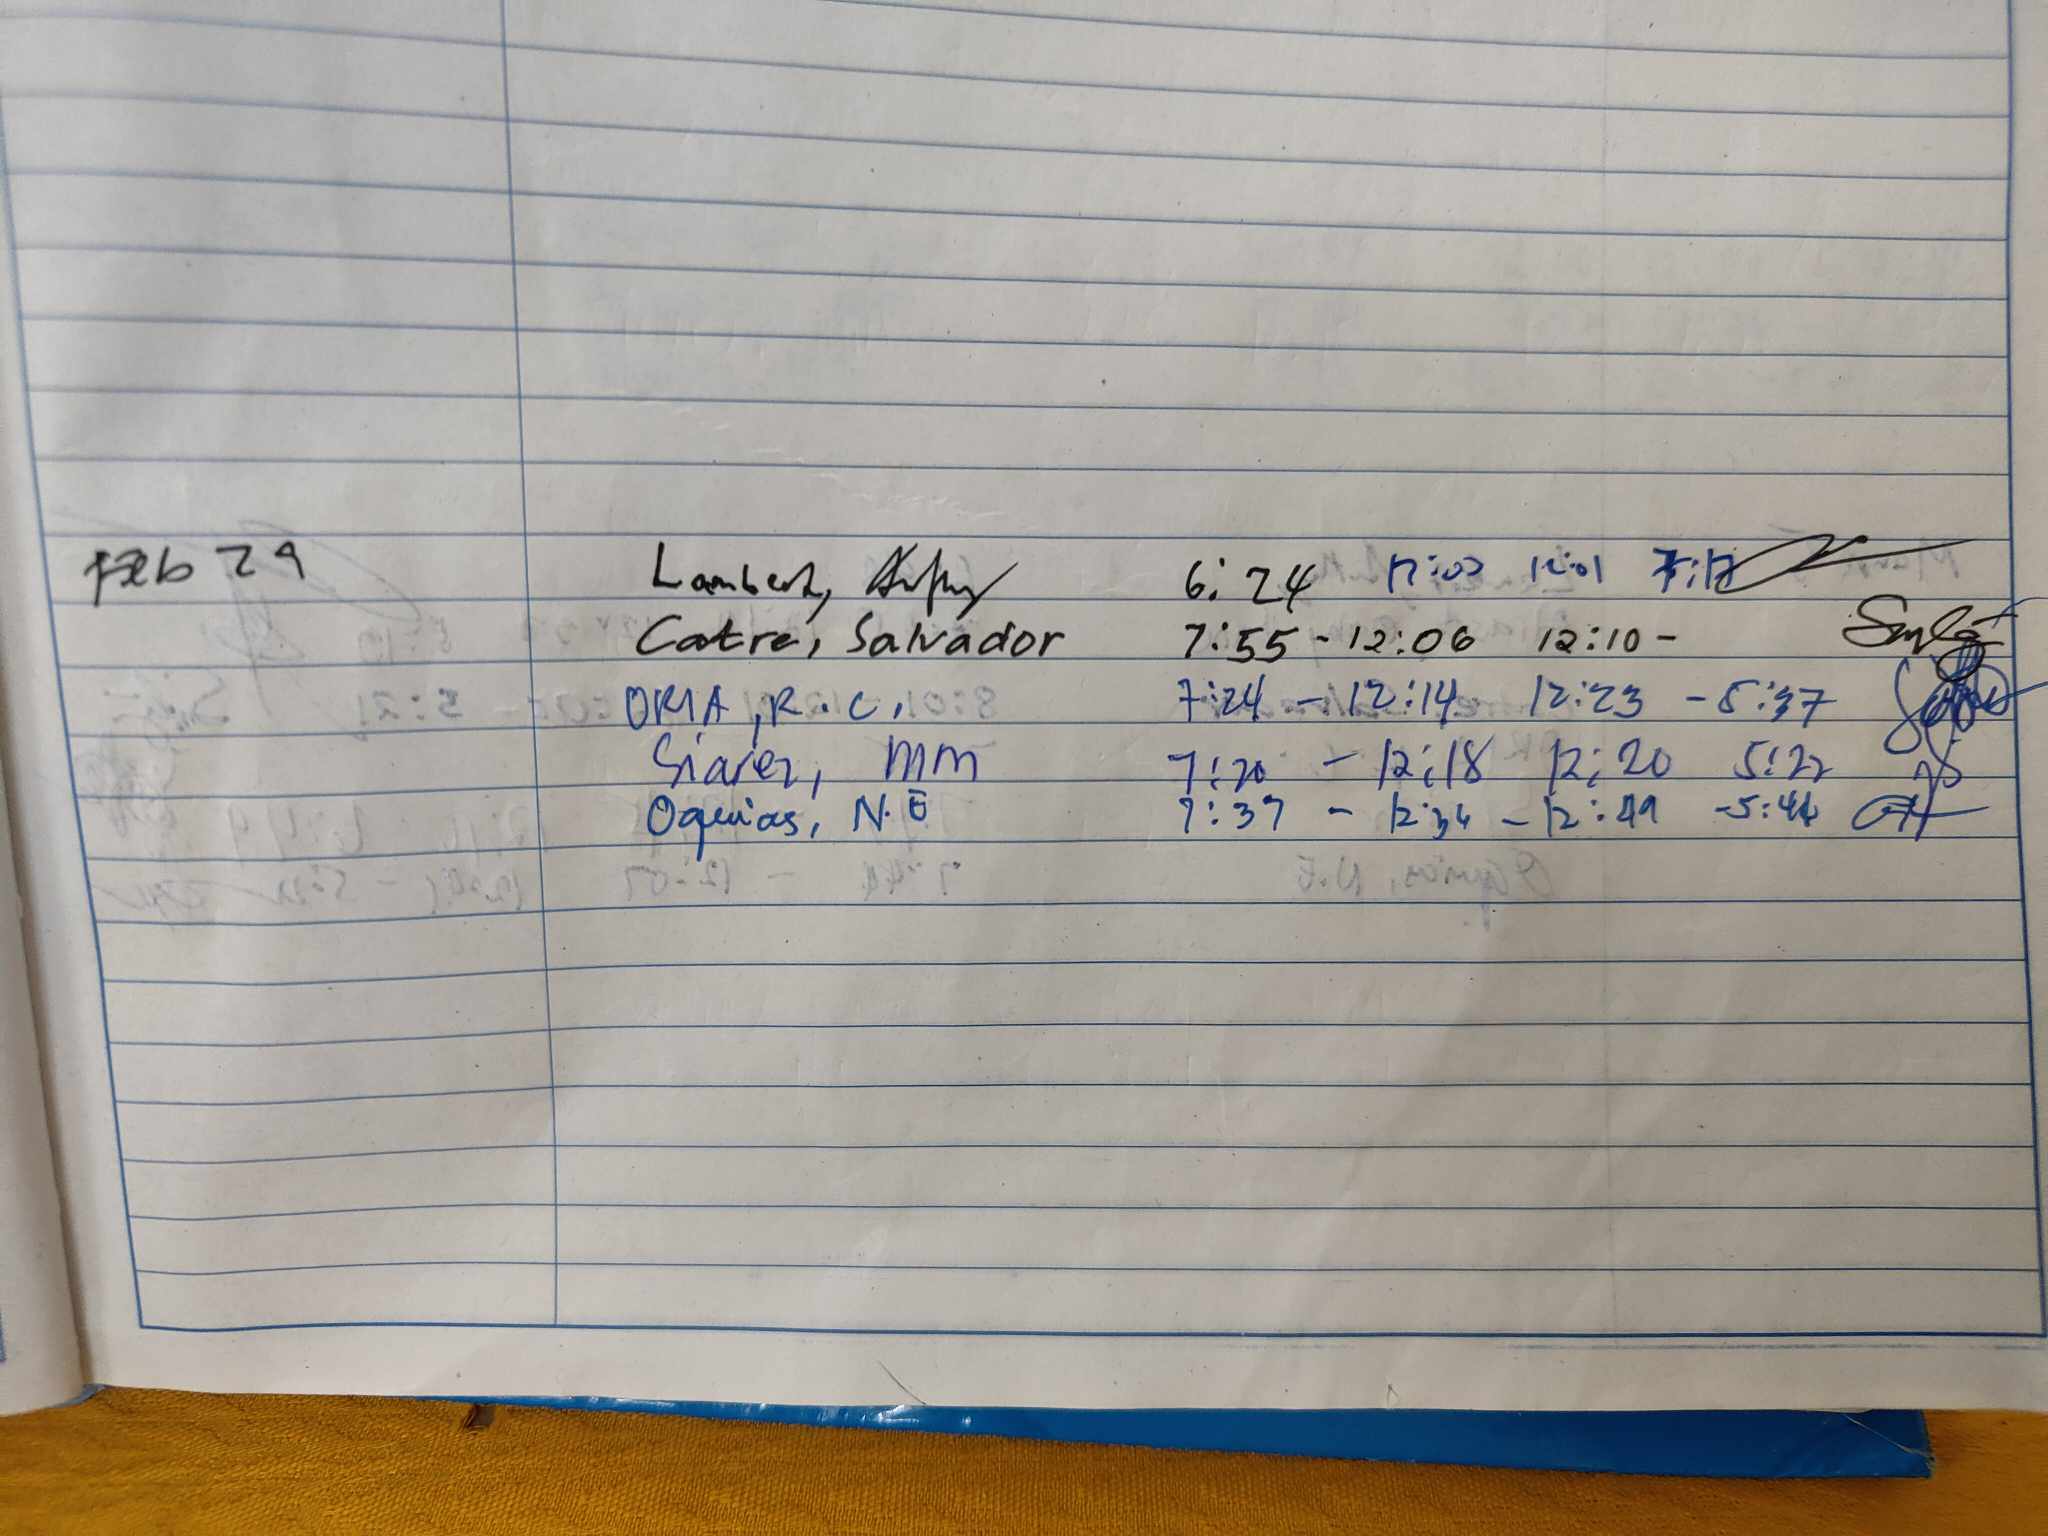 Feb 29 Lambert, 6:24 12:00 12:01
Catre, Salvador 7:55 - 12:06 12:10 -
ORIA, R.C. 7:24 - 12:14 12:23 - 5:37
Siarez, MM 7:20 - 12:18 12:20 5:22
Oquias, N.E 7:37 - 12:34 - 12:49 - 5:46